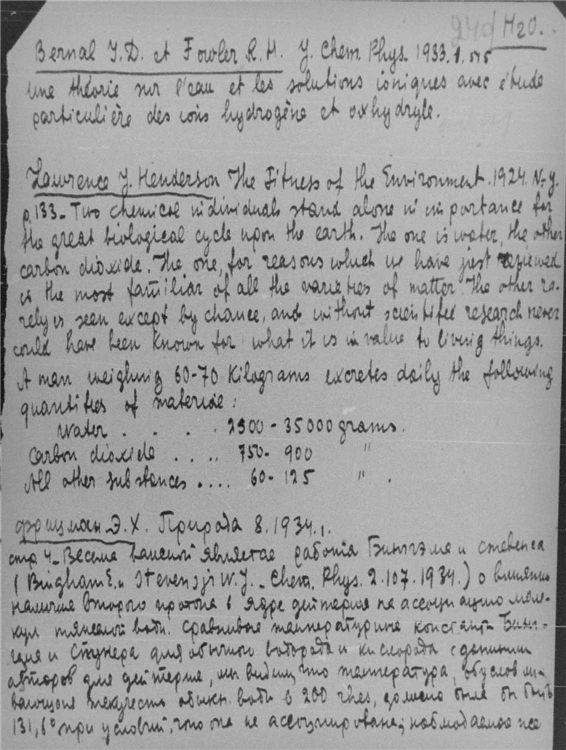 H2O.
Bernal J.D. et Fowler R.H. J. Chem. Phys. 1933. 1. 515
une théorie sur l'eau et les solutions ioniques avec étude
particulière des ions hydrogène et oxhydryle.
Lawrence J. Henderson The Fitness of the Environment. 1924. N-y.
p. 133 - Two chemical individuals stand alone in importance for
the great biological cycle upon the earth. The one is water, the other
carbon dioxide. The one, for reasons which we have just reviewed
is the most familiar of all the varieties of matter. The other ra-
rely is seen except by chance, and without scientific research never
could have been known for what it is in value to living things.
A man weighing 60-70 Kilograms excretes daily the following
quantities of material:
Water . . . . 2500 - 35000 grams.
Carbon dioxide . . . . 750 - 900 "
All other substances .... 60 - 125 " .
Фрицман Э.Х. Природа 8. 1934.
стр 4 - Весьма важной является работа Бингэма и стевенса
(Bingham E. и Stevens jr W.J. - Chem. Phys. 2. 107. 1934.) о влиянии
наличия второго протона в ядре дейтерия на ассоциацию моле-
кул тяжелой воды. Сравнивая температурные константы Бинг-
и для обычного водорода и кислорода с данными
авторов для дейтерия, мы видим, что температура, обуславли-
вающая текучесть обыкн. воды в 200 rhes, должна была бы быть
131,6° при условии, что она не ассоциирована; наблюдаемая же